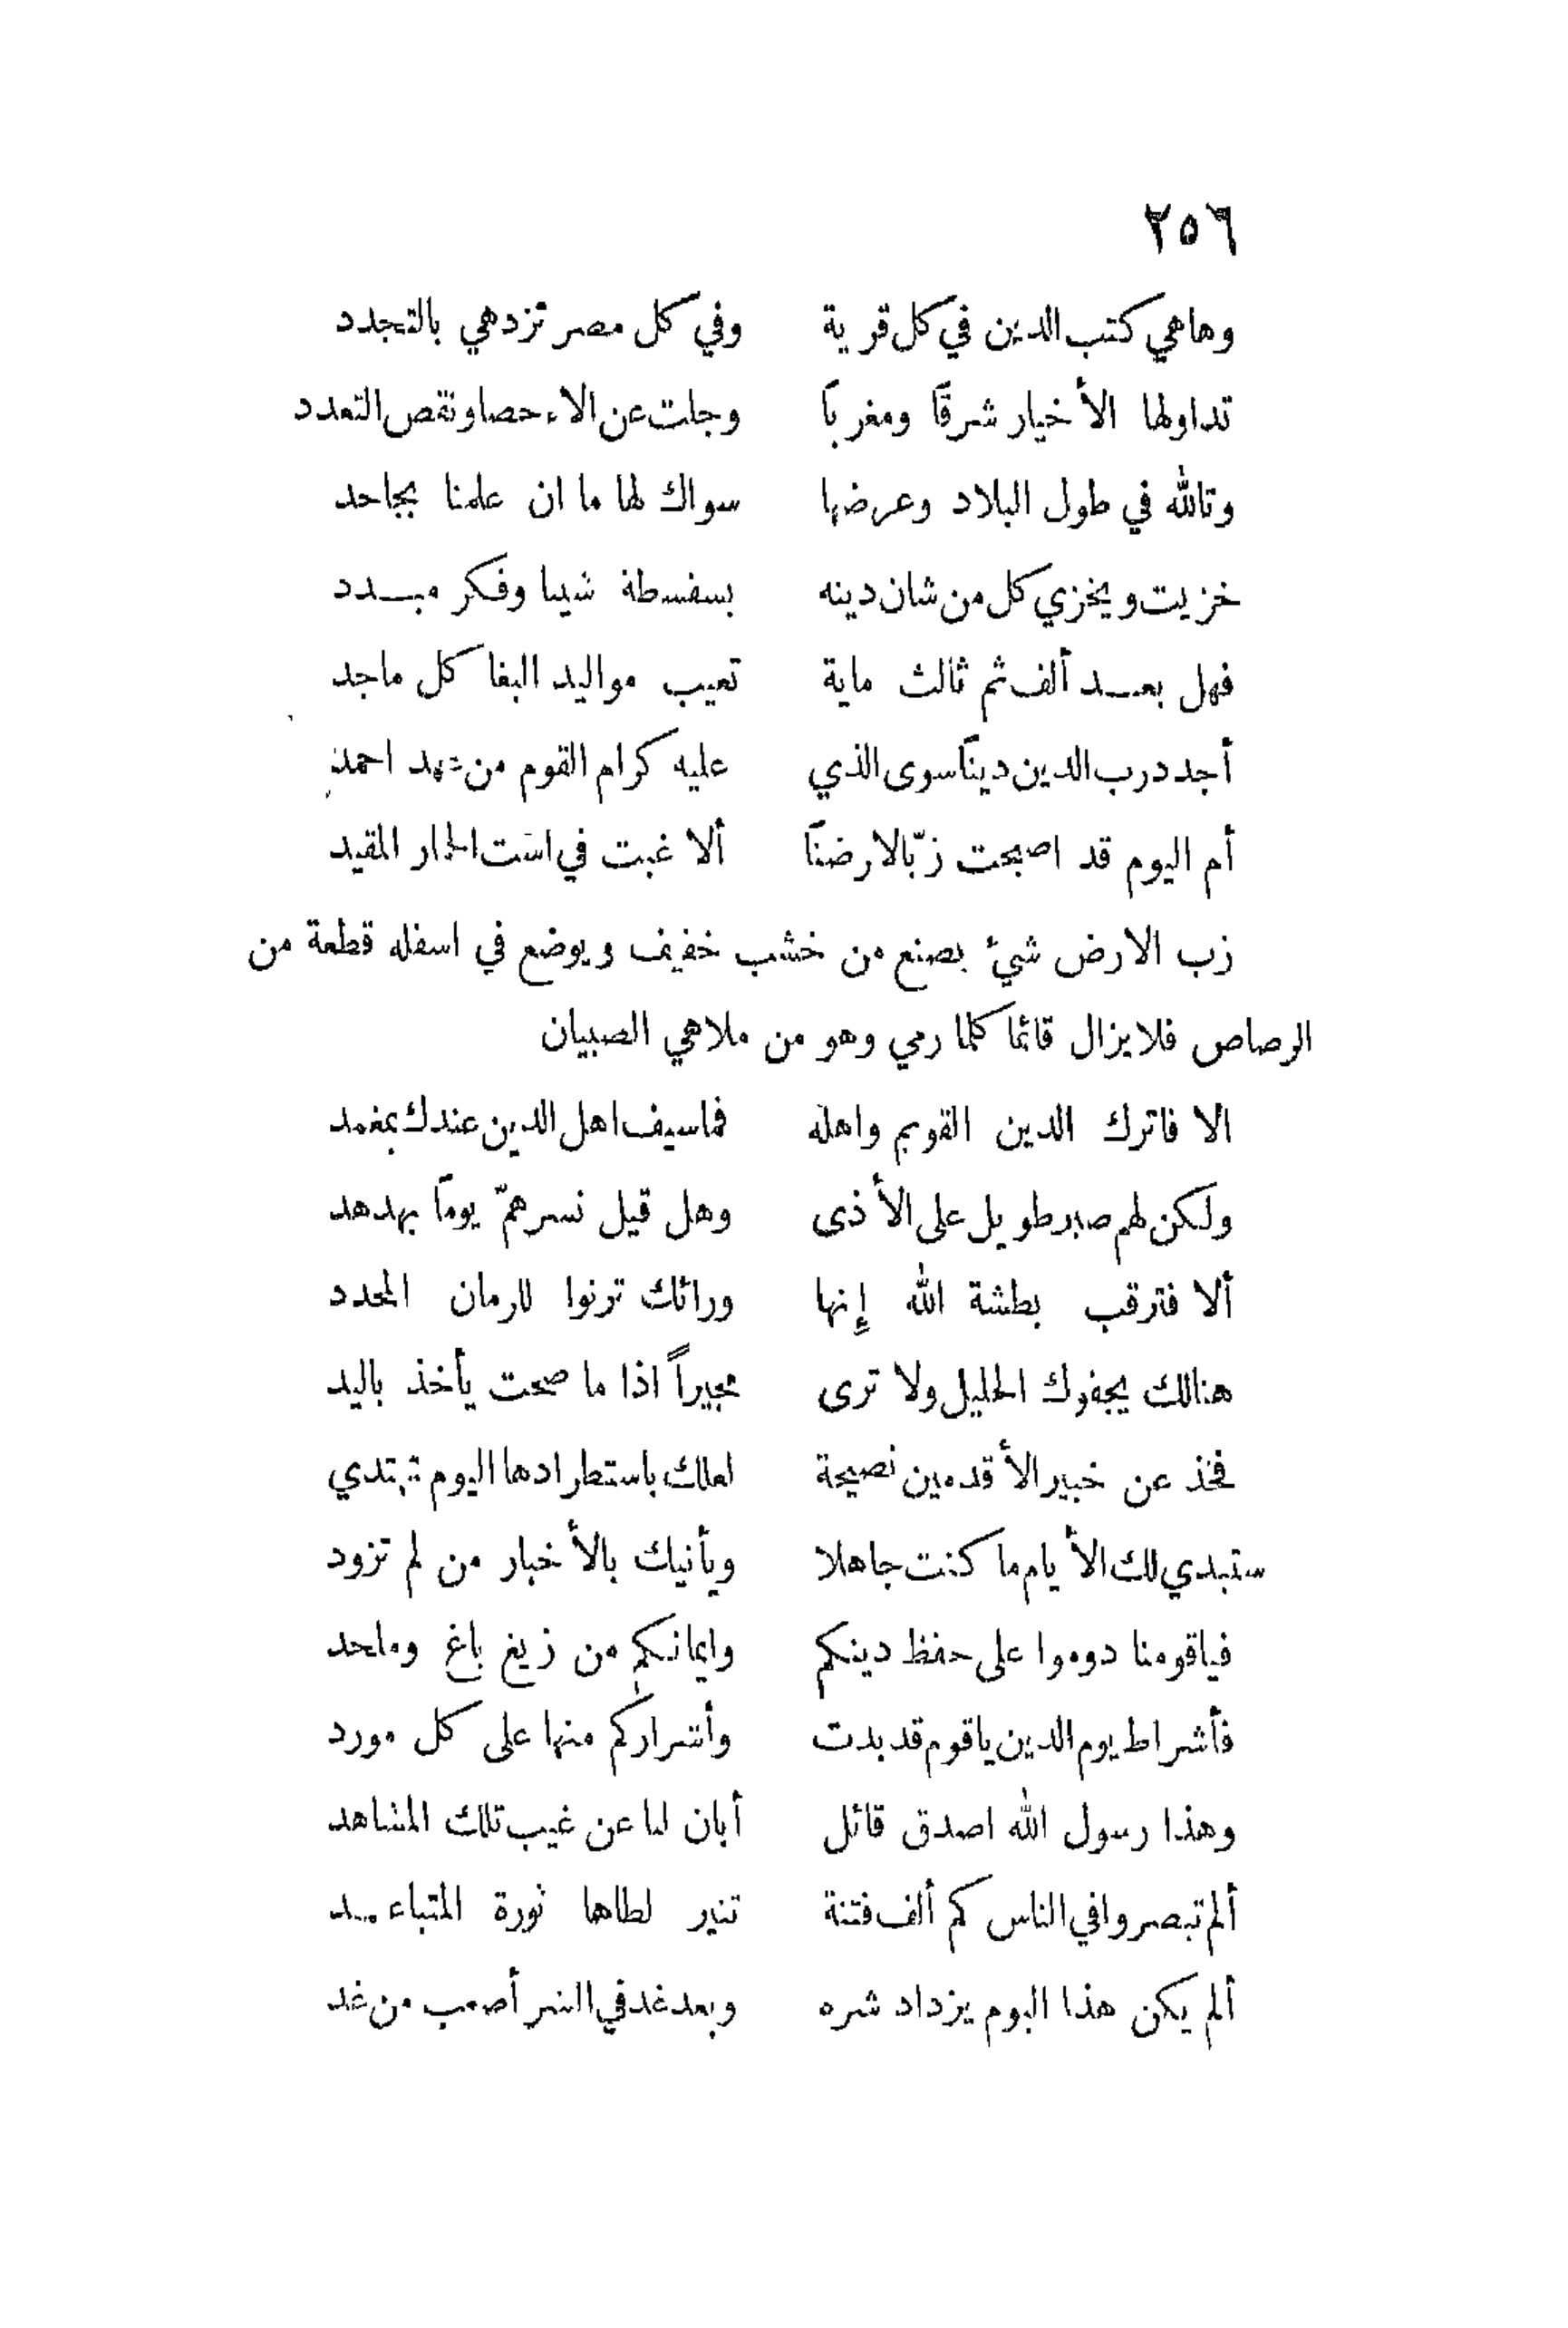 ٢٥٦
وهاهي كتب الدين في كل قرية وفي كل مصر تزدهي بالتجدد
تداولها الأخيار شرقًا ومغربًا وجلت عن الاءحصا ونقص التعدد
وتالله في طول البلاد وعرضها سواك لها ما ان علمنا بجاحد
خزيت ويخزي كل من شان دينه بسفسطة شيبا وفكر مبدد
فهل بعد ألف ثم ثالث ماية تعيب مواليد البغا كل ماجد
أجد درب الدين دينًا سوى الذي عليه كرام القوم من احمد
أم اليوم قد اصبحت زبّا لارضنًا ألا غبت في است الحمار المقيد
زب الارض شيئ يصنع من خشب خفيف ويوضع في اسفله قطعة من
الرصاص فلا يزال قائما كلما رمي وهو من ملاهي الصبيان
الا فاترك الدين القويم واهله فما سيف اهل الدين عندك بمغمد
ولكن لهم صبر طويل على الأذى وهل قيل نسر همّ يومًا بهدهد
ألا فترقب بطشة الله إنها ورائك ترنوا للزمان المحدد
هنالك يجفوك الخليل ولا ترى مجيراً اذا ما صحت يأخذ باليد
فخذ عن خبير الأقدمين نصيحة لعلك باستطرادها اليوم تهتدي
ستبدي لك الأيام ما كنت جاهلا ويأتيك بالأخبار من لم تزود
فياقومنا دوموا على حفظ دينكم وايمانكم من زيغ باغ وملحد
فأشراط يوم الدين ياقوم قد بدت وأشراركم منها على كل مورد
وهذا رسول الله اصدق قائل أبان لنا عن غيب تلك المشاهد
ألم تبصروا في الناس كم ألف فتنة تنير لظاها ثورة المتباعد
ألم يكن هذا اليوم يزداد شره وبعد غد في الشر أصعب من غد